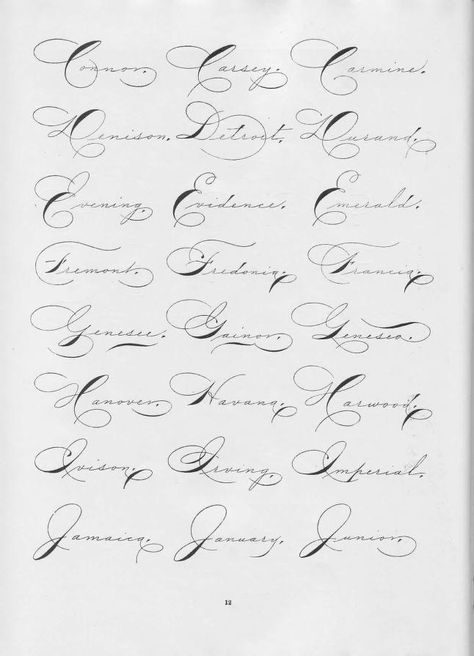 Connor. Carsey. Carmine.
Denison. Detroit. Durand.
Evening. Evidence. Emerald.
Fremont. Fredonia. Francia.
Genesee. Gainor. Geneseo.
Hanover. Havana. Harwood.
Ivison. Irving. Imperial.
Jamaica. January. Junior.
12